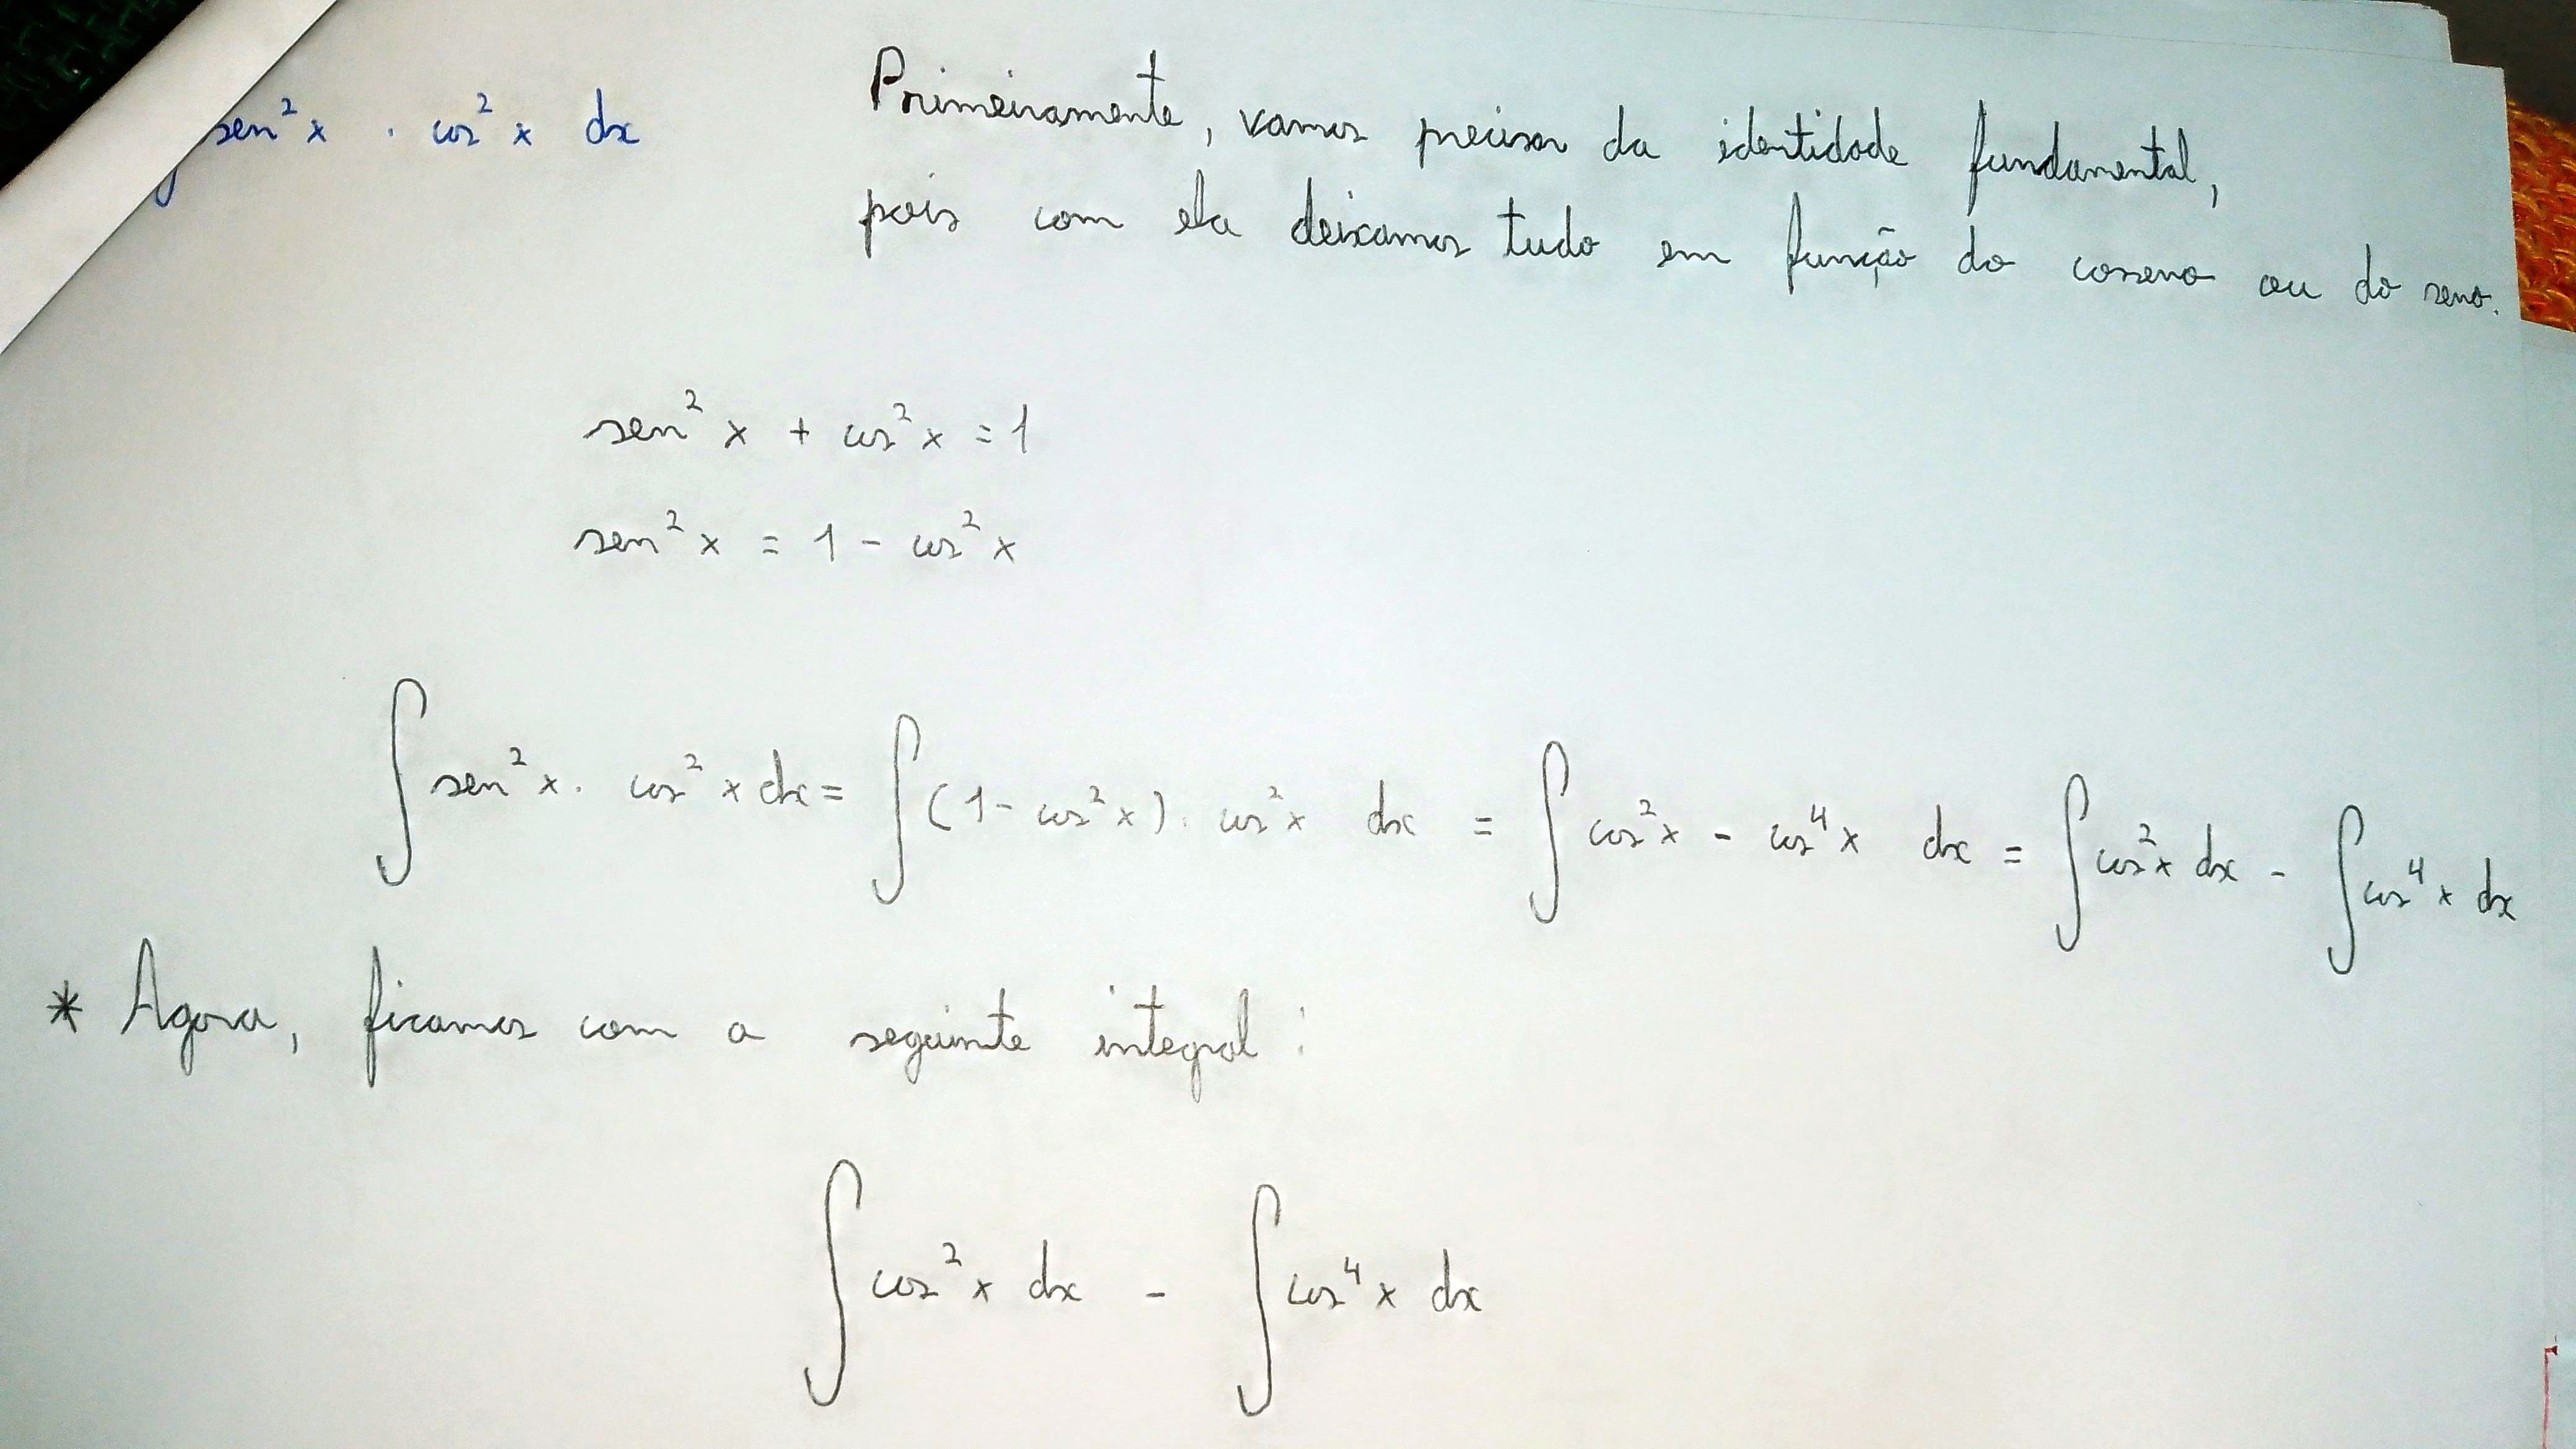 sen²x . cos²x dx
Primeiramente, vamos precisar da identidade fundamental,
pois com ela deixamos tudo em função do cosseno ou do seno.
sen²x + cos²x = 1
sen²x = 1 - cos²x
∫sen²x . cos²x dx = ∫(1 - cos²x) . cos²x dx = ∫cos²x - cos⁴x dx = ∫cos²x dx - ∫cos⁴x dx
* Agora, ficamos com a seguinte integral:
∫cos²x dx - ∫cos⁴x dx